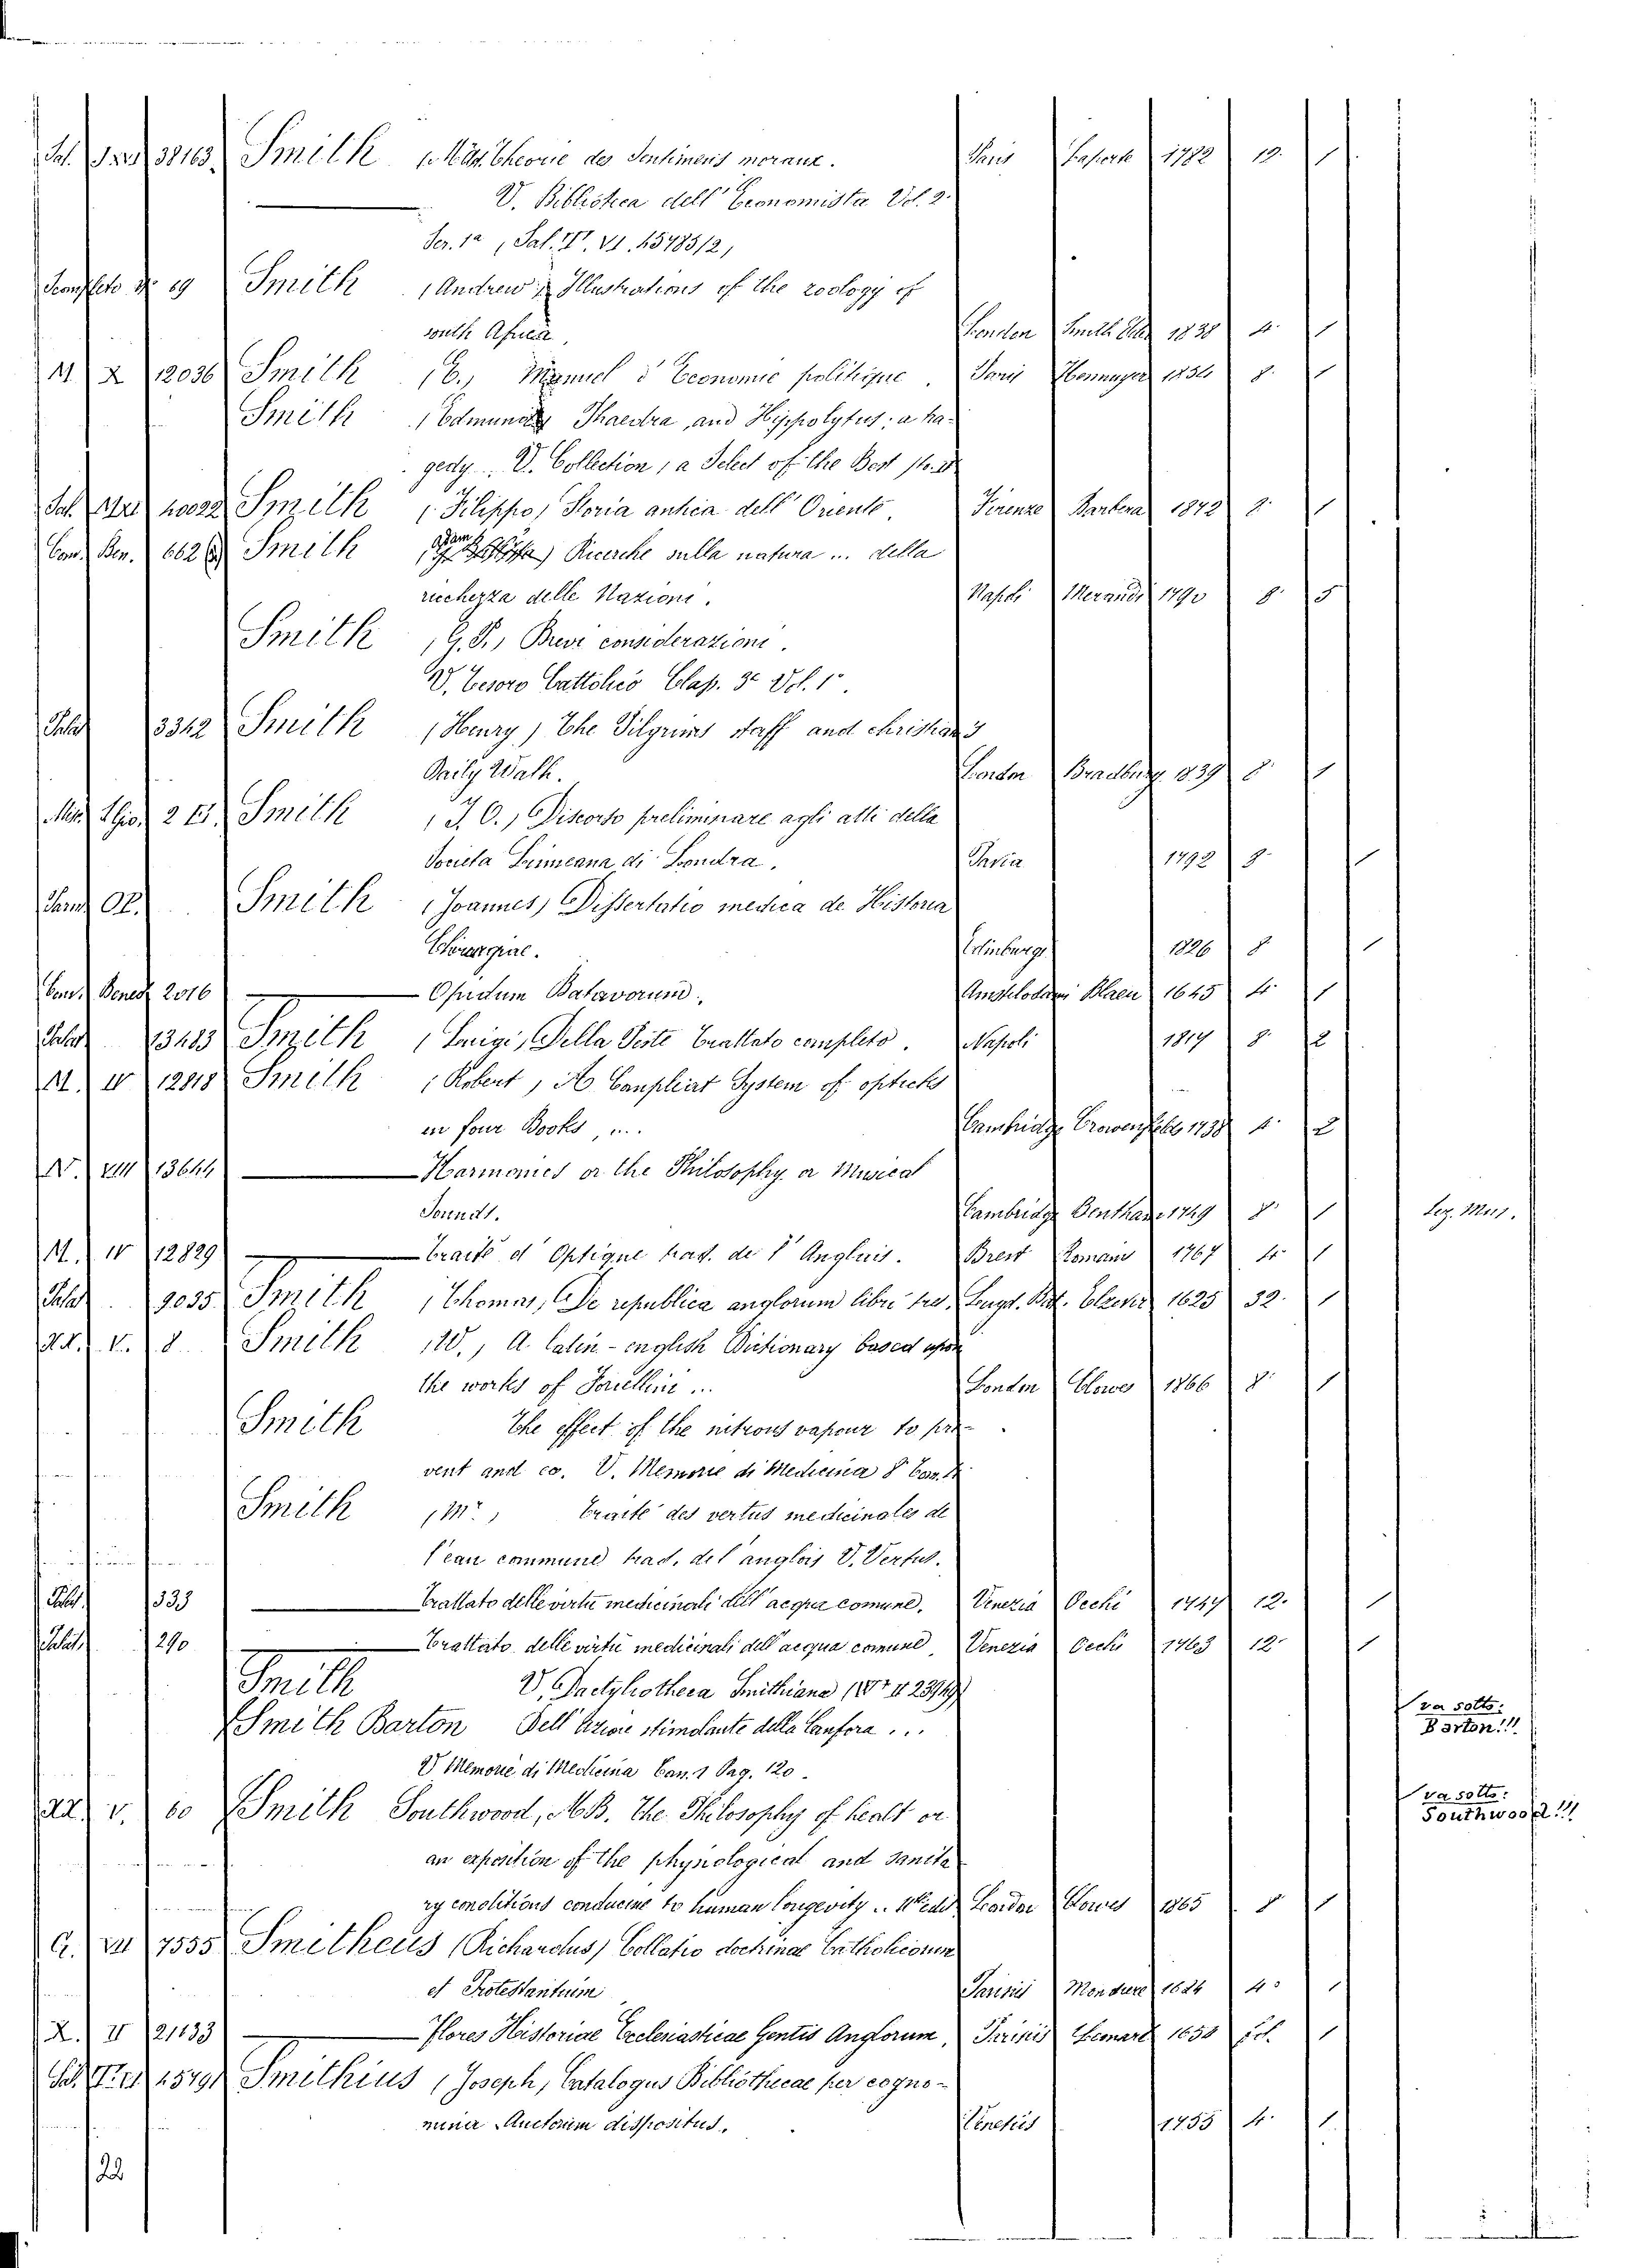 38163 Smith Théorie des Sentimens moraux. Paris Laporte 1782 12. 1
V. Biblioteca dell' Economista Vol. 2.
Ser. 1a (Sal. VI. 45785/2)
Scaffeto N. 69 Smith (Andrew) Illustrations of the zoology of
south Africa London Smith 1838 4. 1
M. X 12036 Smith (E.) Manuel d' Economie politique. Paris 1854 8. 1
Smith (Edmund) Phaedra, and Hyppolytus; a tra-
gedy. V. Collection, a Select of the Best
Sal. 40022 Smith (Filippo) Storia antica dell' Oriente. Firenze Barbera 1872 8. 1
Com. Ben. 6628 Smith (Adam) Ricerche sulla natura ... della
ricchezza delle Nazioni. Napoli Merande 1790 8. 5
Smith (G. P.) Brevi considerazioni.
V. Tesoro Cattolico Clas. 3a Vol. 1°.
Palat 3342 Smith (Henry) The Pilgrims staff and christian's
Daily Walk. London Bradbury 1839 8. 1
Smith (J. O.) Discorso preliminare agli atti della
Societa Linneana di Londra. Pavia 1792 8. 1
Op. Smith (Joannes) Dissertatio medica de Historia
Edinburgi 1826 8 1
Com. Bened. 2016 — Opidum Batavorum. Amstelodami Blaeu 1645 4. 1
Palat 13483 Smith (Luigi) Della Peste Trattato completo. Napoli 1814 8. 2
M. IV 12818 Smith (Robert) A Compleat System of opticks
in four Books, ... Cambridge 1738 4. 2
N. VIII 13644 — Harmonics or the Philosophy or Musical
Sounds. Cambridge Benthane 1749 8. 1 Leg. Mus.
M. IV 12829 — Traité d' Optique trad. de l' Anglais. Brest Romain 1767 4. 1
Palat 9035 Smith (Thomas) De republica anglorum libri tres. Lugd. Bat. Elzevir 1625 32. 1
V. 8 Smith (W.) A Latin-english Dictionary based upon
the works of Forcellini ... London Clowes 1866 8. 1
Smith The effect of the nitrous vapour to pre-
vent and co. V. Memorie di Medicina 8
Smith (Mr.) Traité des vertus medicinales de
l'eau commune trad. de l'anglois V. Vertus.
Palat. 333 — Trattato delle virtu medicinali dell' acqua comune. Venezia Occhi 1747 12. 1
Palat. 290 — Trattato delle virtu medicinali dell' acqua comune. Venezia Occhi 1763 12. 1
Smith V. Dactyliotheca Smithiana
Smith Barton Dell' Azione stimolante della Canfora ... va sotto: Barton!!!
V Memorie di Medicina 1 Pag. 120.
V. 60 Smith Southwood, M.B. The Philosophy of healt or va sotto: Southwood!!!
an exposition of the physiological and sanita-
ry conditions conducive to human longevity .. London Clowes 1865 8 1
G. VII 7535 Smitheus (Richardus) Collatio doctrinae Catholicorum
et Protestantium Parisiis 1624 4° 1
X. II 21133 — Flores Historiae Ecclesiasticae Gentis Anglorum. Parisiis 1650 fol. 1
45791 Smithius (Joseph) Catalogus Bibliothecae per cogno-
mina Auctorum dispositus. Venetiis 1755 4. 1
22